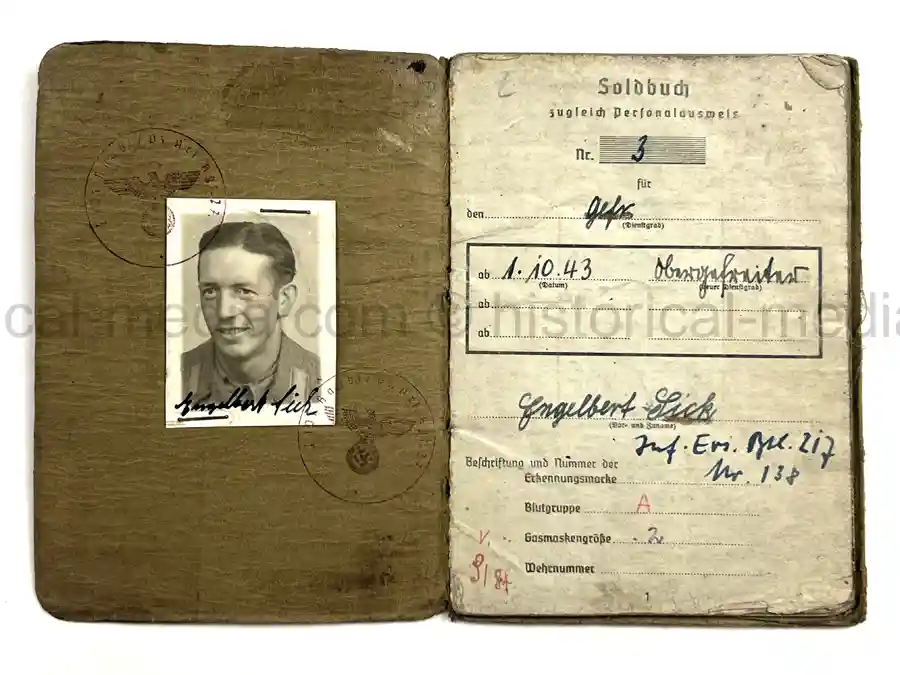 Engelbert Sick
Soldbuch
zugleich Personalausweis
Nr. 3
für
den Gefr
(Dienstgrad)
ab 1.10.43 Obergefreiter
(Datum) (neuer Dienstgrad)
ab
ab
cal-media.com © historical-media
Engelbert Sick
(Vor- und Zuname)
Inf. Ers. Btl. 217
Beschriftung und Nummer der
Nr. 138
Erkennungsmarke
Blutgruppe A
Gasmaskengröße 2
Wehrnummer
1